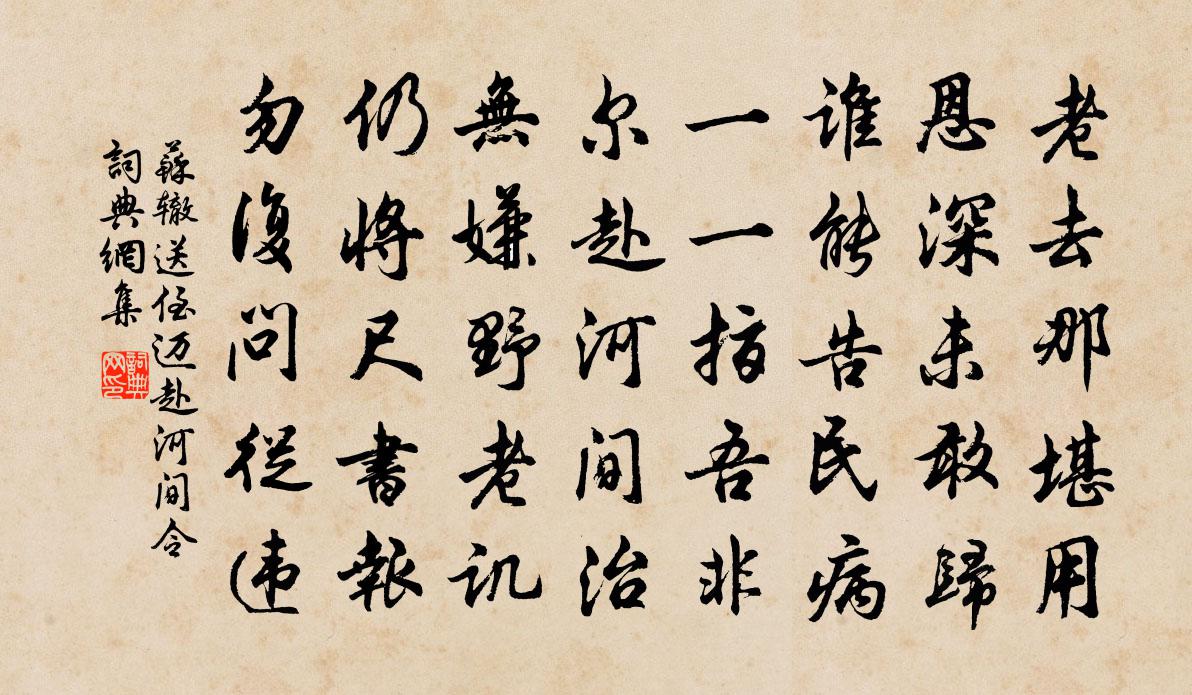 老去那堪用
恩深未敢歸
谁能告民病
一一指吾非
尔赴河间治
無嫌野老讥
仍将尺書報
勿復问從违
蘇辙送侄迈赴河间令
詞典網集
詞典网印